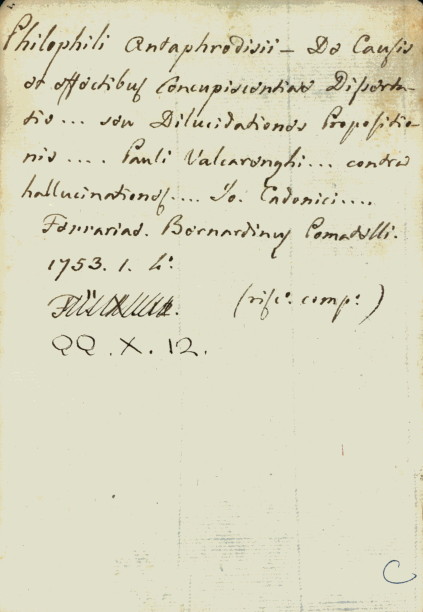 Philophili Antaphrodisii - De Causis
et effectibus Concupiscentiae Disserta-
tio ... seu Dilucidationes Propositio-
nis .... Pauli Valcarenghi ... contra
hallucinationes .... Io. Cadonici ....
Ferrariae. Bernardinus Pomatelli.
1753. 1. 4º.
(risc.º comp.º)
QQ. X. 12.
C